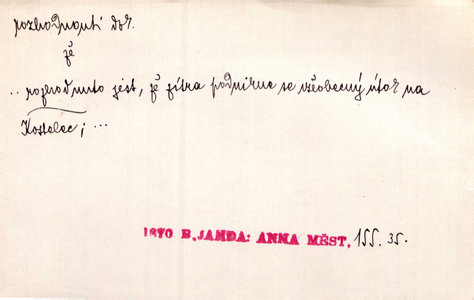 rozhodnouti dok.
že
.. rozhodnuto jest, že zítra podnikne se všeobecný útok na
Kostelec; ...
1870 B. JANDA: ANNA MĚST. 155. 35.